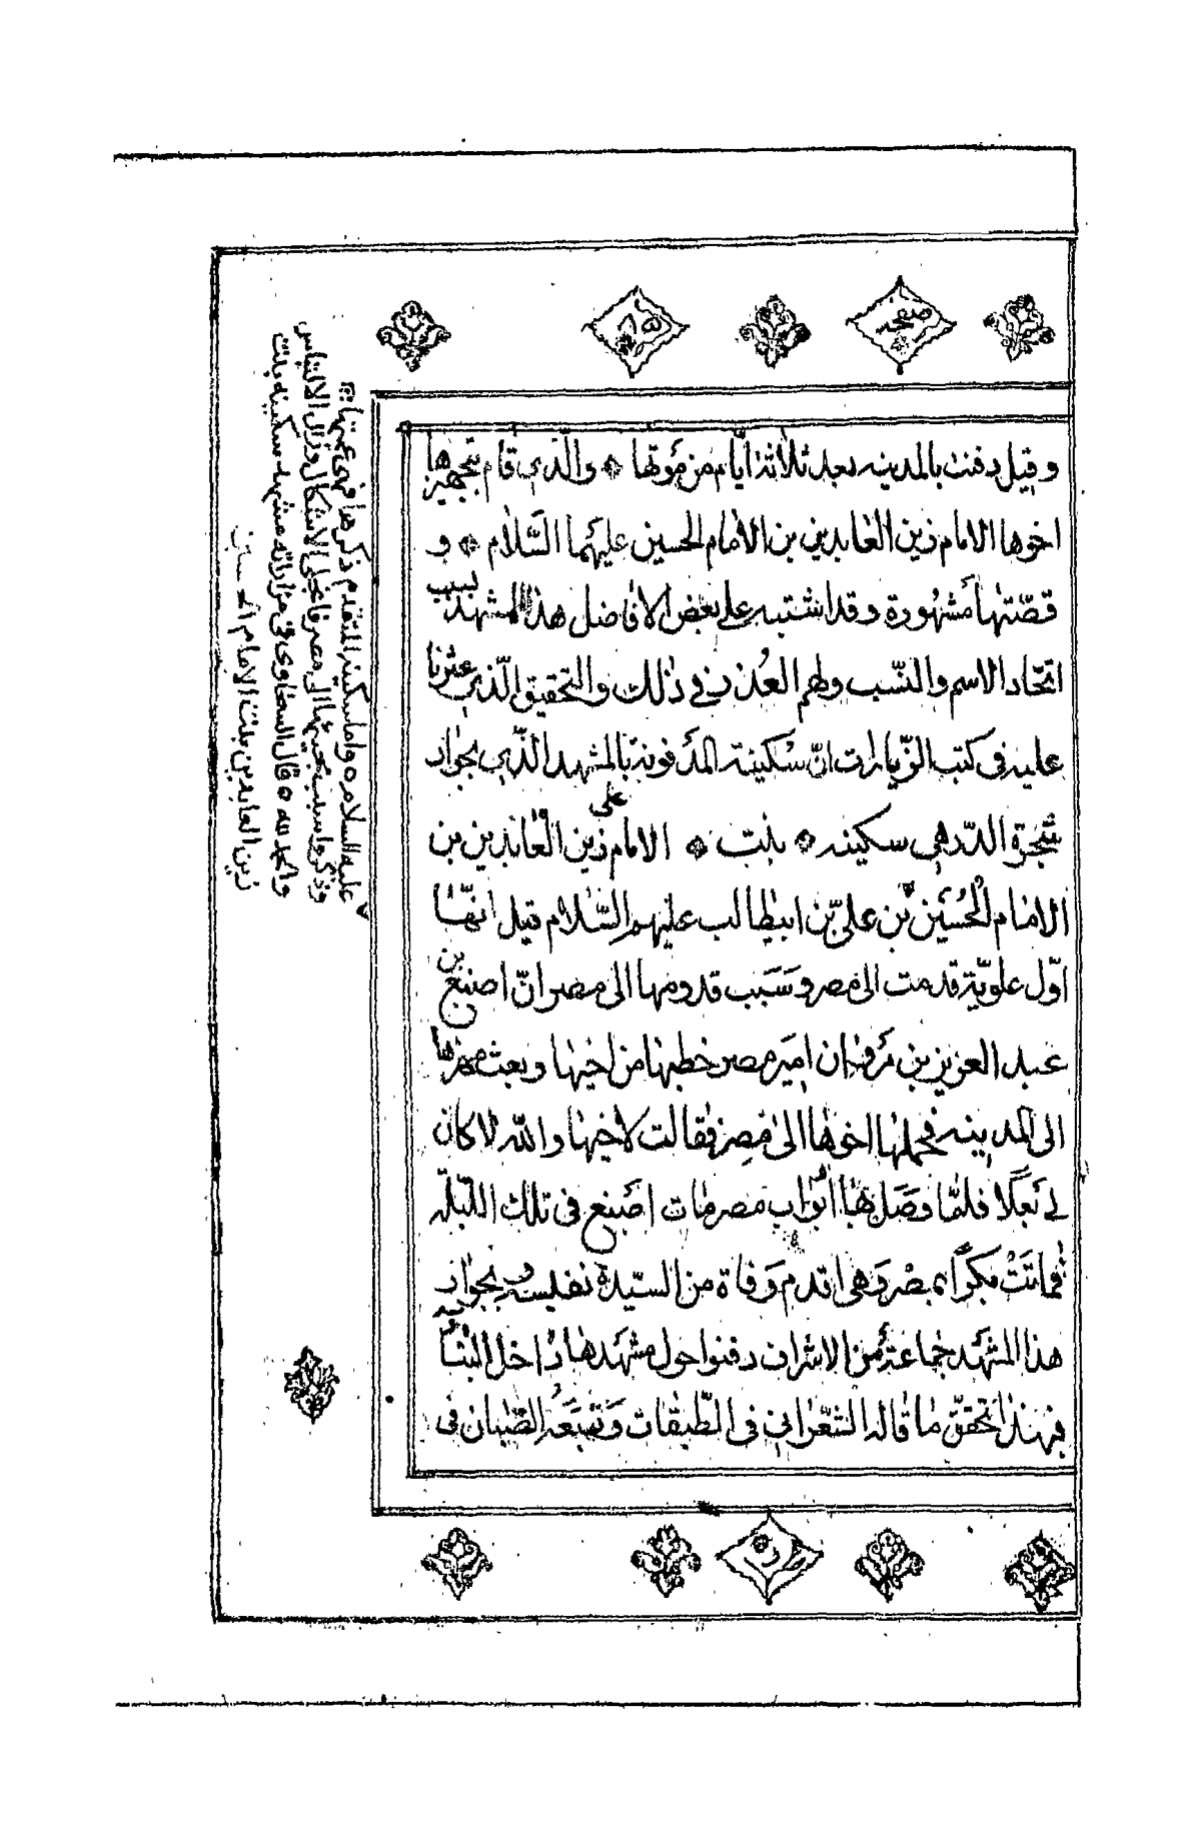 صفحه
٨٥
وقيل دفنت بالمدينه بعد ثلاثة ايّام من موتها والّذى قام بتجهيزها
اخوها الامام زين العابدين بن الامام الحسين عليهما السّلام و
قصّتها مشهورة وقد اشتبه على بعض الافاضل هذا المشهد بسبب
اتّحاد الاسم والنّسب ولهم العُذر فى ذلك والتحقيق الّذى عثرنا
عليه فى كتب الزّيارات انّ سكينة المدفونة بالمشهد الّذى بجوار
شجرة الدّر هى سكينه بنت الامام على زين العابدين بن
الامام الحُسَين بن علىّ بن ابيطالب عليهم السّلام قيل انّها
اوّل علويّة قدمت الى مصر وسَبَب قدومها الى مصر انّ اصبغ بن
عبد العزيز بن مَروان امير مصر خطبها من اخيها وبعث مهرها
الى المدينه فحملها اخوها الى مصر فقالت لاخيها والله لا كان
لى بَعلًا فلمّا وصَل بها ابواب مصر مات اصبغ فى تلك اللّيلة
فماتَتْ بكرًا بمصْر وَهى اقدم وَفاة من السيّدة نفيسه و بجوار
هذا المشهَد جماعة من الاشراف دفنوا حول مشهَدها داخل البُناء
فبهذا تحقّق ما قاله الشّعرانى فى الطّبقات وَتَبَعَهُ الصّبان فى
عليه السلام واما سكينة المتقدم ذكرها فهى عمتها
وذكروا سبب مجيئها الى مصر فانجلى الاشكال وزال الالتباس
والحمد لله قال السخاوى فى مزاراته مشهد سكينه بنت
زين العابدين بنت الامام